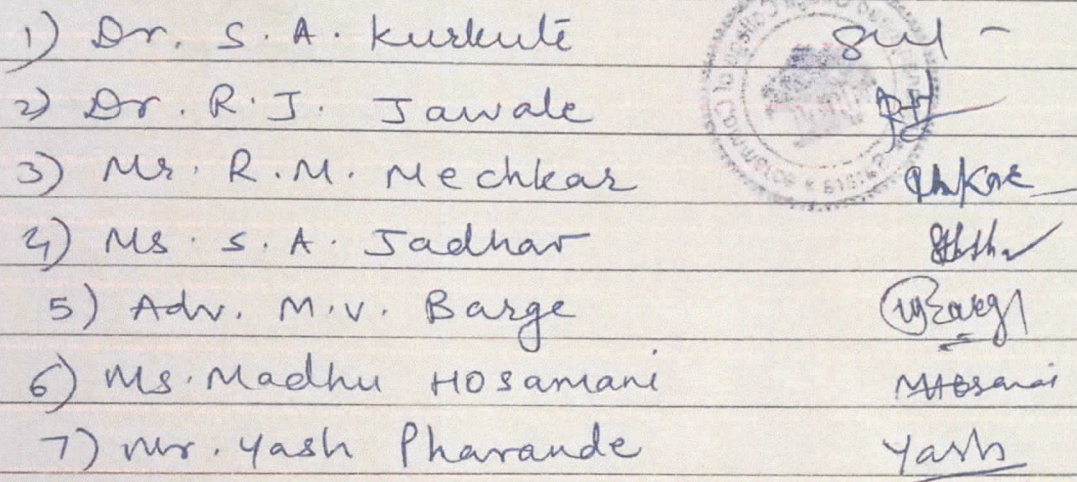 1) Dr. S. A. Kurkute
2) Dr. R. J. Jawale
3) Mr. R. M. Mechkar
4) Ms. S. A. Jadhav
5) Adv. M. V. Barge
6) Ms. Madhu Hosamani
7) Mr. Yash Pharande Yash